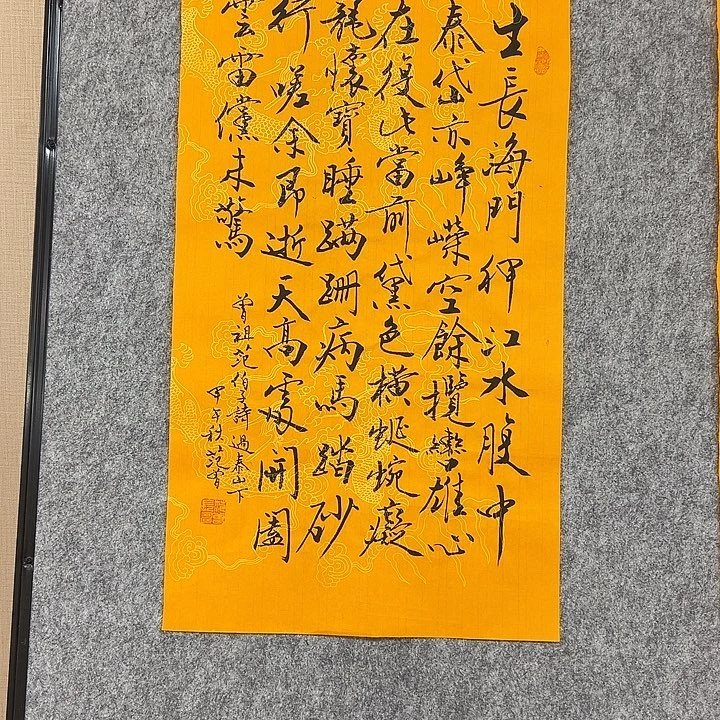 生長海門狎江水腹中
泰岱亦峰嶸空餘攬轡雄心
在復此當前黛色橫蜒蜿癡
龍懷寶睡蹣跚病馬踏砂
行嗟余即逝天高處開闔
雲雷儻未驚
曾祖范伯子詩過泰山下
甲午秋范曾